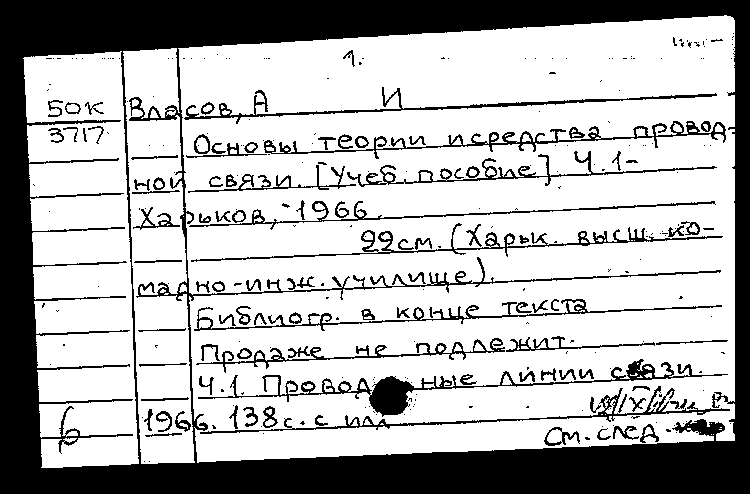 1.
50К Власов, А И
3717
Основы теории и средства провод-
ной связи. [Учеб. пособие] Ч.1-
Харьков, 1966.
22см. (Харьк. высш. ко-
мадно-инж. училище).
Библиогр. в конце текста
Продаже не подлежит.
Ч.1. Проводные линии связи.
1966. 138с. с илл
6 См. след.